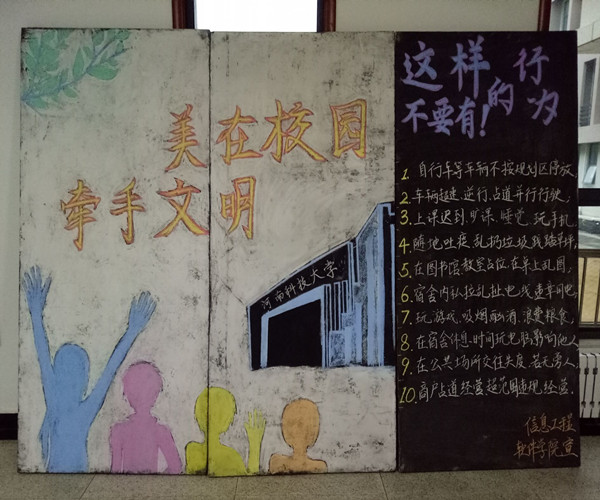 美在校园
牵手文明
河南科技大学
这样的行为
不要有!
1. 自行车等车辆不按规划区停放
2. 车辆超速、逆行、占道并行行驶;
3. 上课迟到、旷课、睡觉、玩手机
4. 随地吐痰、乱扔垃圾、践踏草坪;
5. 在图书馆、教室占位、在桌上乱画;
6. 宿舍内私拉乱扯电线、违章用电;
7. 玩游戏、吸烟酗酒、浪费粮食
8. 在宿舍休息时间玩电脑影响他人
9. 在公共场所交往失度、若无旁人
10. 商户占道经营、超范围违规经营.
信息工程
软件学院宣